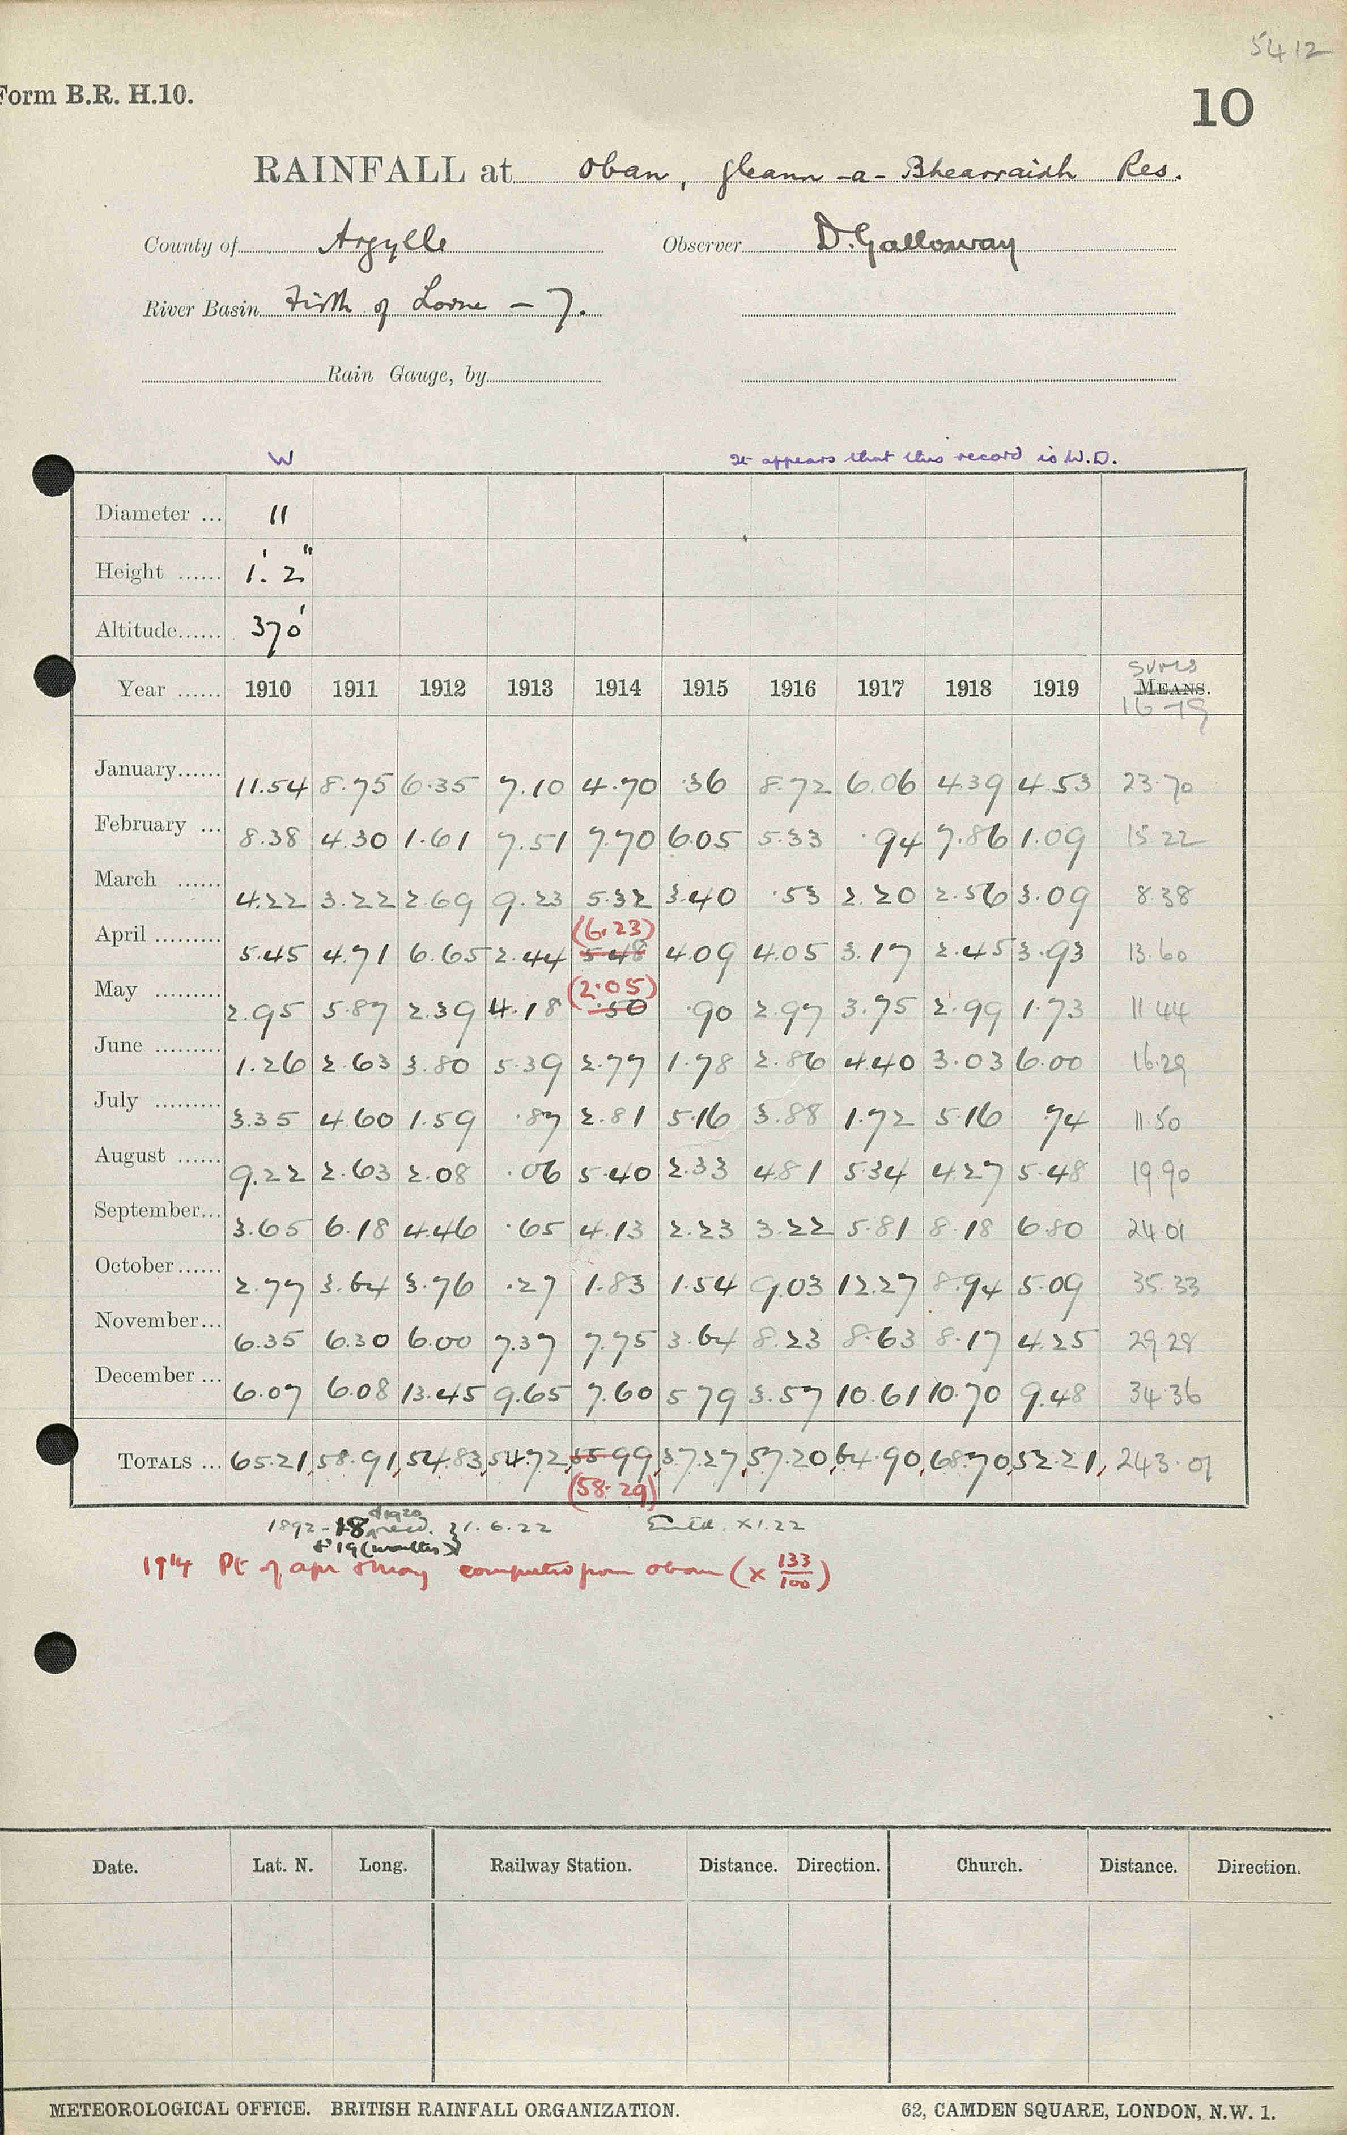 5412
Form B.R. H.10.
10
RAINFALL at Oban, Gleann-a-Bhearraidh Res.
County of Argylle Observer D. Galloway
River Basin Firth of Lorne - 7.
Rain Gauge, by
W It appears that this record is W.D.
Diameter ... 11
Height ...... 1' 2"
Altitude...... 370'
Sums
Year ...... 1910 1911 1912 1913 1914 1915 1916 1917 1918 1919 MEANS.
16-19
January...... 11.54 8.75 6.35 7.10 4.70 .36 8.72 6.06 4.39 4.53 23.70
February ... 8.38 4.30 1.61 7.51 7.70 6.05 5.33 .94 7.86 1.09 15.22
March ...... 4.22 3.22 2.69 9.23 5.32 3.40 .53 2.20 2.56 3.09 8.38
(6.23)
April ......... 5.45 4.71 6.65 2.44 5.48 4.09 4.05 3.17 2.45 3.93 13.60
(2.05)
May ......... 2.95 5.87 2.39 4.18 .50 .90 2.97 3.75 2.99 1.73 11.44
June ......... 1.26 2.63 3.80 5.39 2.77 1.78 2.86 4.40 3.03 6.00 16.29
July ......... 3.35 4.60 1.59 .87 2.81 5.16 3.88 1.72 5.16 74 11.50
August ...... 9.22 2.63 2.08 .06 5.40 2.33 4.81 5.34 4.27 5.48 19.90
September... 3.65 6.18 4.46 .65 4.13 2.23 3.22 5.81 8.18 6.80 24.01
October...... 2.77 3.64 3.76 .27 1.83 1.54 9.03 12.27 8.94 5.09 35.33
November... 6.35 6.30 6.00 7.37 7.75 3.64 8.23 8.63 8.17 4.25 29.28
December ... 6.07 6.08 13.45 9.65 7.60 5.79 3.57 10.61 10.70 9.48 34.36
TOTALS ... 65.21 58.91 54.83 54.72 55.99 37.27 57.20 64.90 68.70 52.21 243.01
(58.29)
+1920
1892-18 recd. 31.6.22 Entd. X1.22
+'19 (months)
1914 Pt of Apr & May computed from Oban (x 133/100)
Date. Lat. N. Long. Railway Station. Distance. Direction. Church. Distance. Direction.
METEOROLOGICAL OFFICE. BRITISH RAINFALL ORGANIZATION. 62, CAMDEN SQUARE, LONDON, N.W. 1.